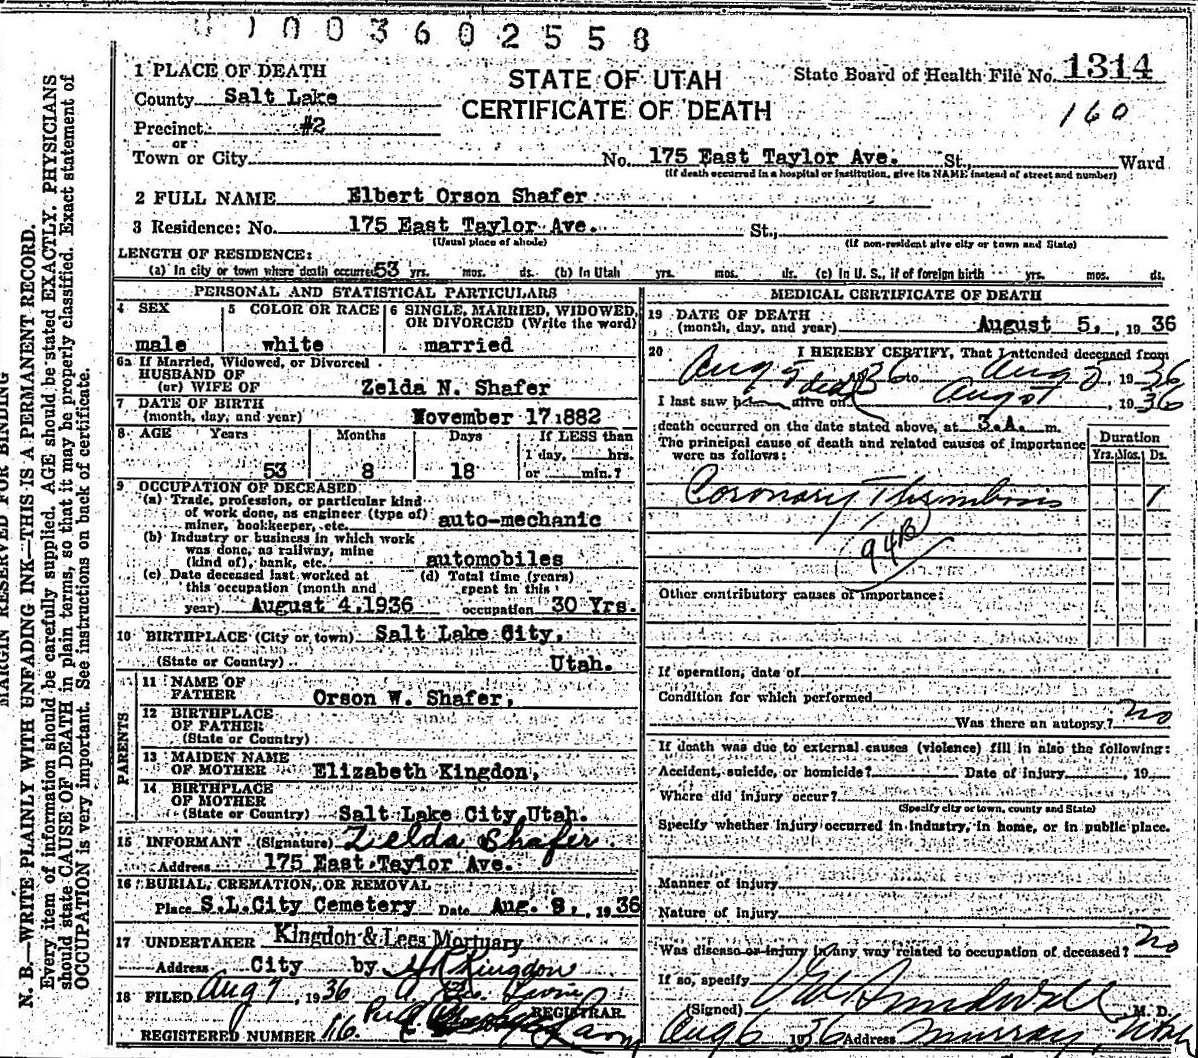 1003602558
1 PLACE OF DEATH
STATE OF UTAH
State Board of Health File No. 1314
County Salt Lake
CERTIFICATE OF DEATH
160
Precinct #2
or
Town or City No. 175 East Taylor Ave. St., Ward
(If death occurred in a hospital or institution, give its NAME instead of street and number)
2 FULL NAME Elbert Orson Shafer
3 Residence: No. 175 East Taylor Ave. St.,
(Usual place of abode) (If non-resident give city or town and State)
LENGTH OF RESIDENCE:
(a) In city or town where death occurred 53 yrs. mos. ds. (b) In Utah yrs. mos. ds. (c) In U. S., if of foreign birth yrs. mos. ds.
PERSONAL AND STATISTICAL PARTICULARS
4 SEX
male
5 COLOR OR RACE
white
6 SINGLE, MARRIED, WIDOWED,
OR DIVORCED (Write the word)
married
6a If Married, Widowed, or Divorced
HUSBAND OF
(or) WIFE OF Zelda N. Shafer
7 DATE OF BIRTH
(month, day, and year) November 17.1882
8 AGE Years Months Days If LESS than
1 day, hrs.
53 8 18 or min.?
9 OCCUPATION OF DECEASED
(a) Trade, profession, or particular kind
of work done, as engineer (type of)
miner, bookkeeper, etc. auto-mechanic
(b) Industry or business in which work
was done, as railway, mine
(kind of), bank, etc. automobiles
(c) Date deceased last worked at
this occupation (month and
year) August 4,1936
(d) Total time (years)
spent in this
occupation 30 Yrs.
10 BIRTHPLACE (City or town) Salt Lake City,
(State or Country) Utah.
PARENTS
11 NAME OF
FATHER Orson W. Shafer,
12 BIRTHPLACE
OF FATHER
(State or Country)
13 MAIDEN NAME
OF MOTHER Elizabeth Kingdon,
14 BIRTHPLACE
OF MOTHER
(State or Country) Salt Lake City, Utah.
15 INFORMANT (Signature) Zelda Shafer.
Address 175 East Taylor Ave.
16 BURIAL, CREMATION, OR REMOVAL
Place S.L.City Cemetery Date Aug. 8, 1936
17 UNDERTAKER Kingdon & Lees Mortuary
Address City by Kingdon
18 FILED Aug 7, 1936
REGISTRAR.
REGISTERED NUMBER 116
MEDICAL CERTIFICATE OF DEATH
19 DATE OF DEATH
(month, day, and year) August 5, 1936
20 I HEREBY CERTIFY, That I attended deceased from
Aug 5 36 to Aug 5, 1936
dead
I last saw h alive on Aug 5, 1936
death occurred on the date stated above, at 3.A. m.
The principal cause of death and related causes of importance
were as follows:
Duration
Yrs. Mos. Ds.
Coronary Thrombosis 1
94B
Other contributory causes of importance:
If operation, date of
Condition for which performed
Was there an autopsy? no
If death was due to external causes (violence) fill in also the following:
Accident, suicide, or homicide? Date of injury, 19
Where did injury occur?
(Specify city or town, county and State)
Specify whether injury occurred in industry, in home, or in public place.
Manner of injury
Nature of injury
Was disease or injury in any way related to occupation of deceased? no
If so, specify
(Signed) M. D.
Aug 6 1936 Address Murray, Utah
MARGIN RESERVED FOR BINDING
N. B.—WRITE PLAINLY WITH UNFADING INK—THIS IS A PERMANENT RECORD.
Every item of information should be carefully supplied. AGE should be stated EXACTLY. PHYSICIANS
should state CAUSE OF DEATH in plain terms, so that it may be properly classified. Exact statement of
OCCUPATION is very important. See instructions on back of certificate.